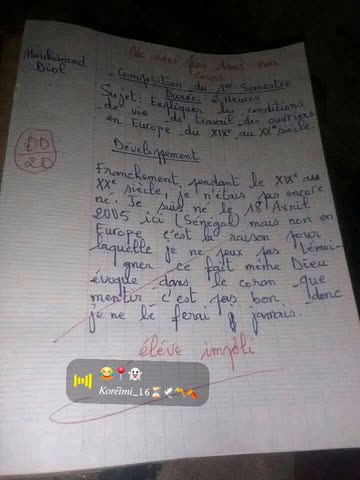 Ne viens plus dans mon
cours
Mouhamed
Diol
Composition du 1er Semestre
Durée: 2 Heures
Sujet: Expliquer les conditions
de vie de travail des ouvriers
en Europe du XIXe au XXe siècle.
00
20
Développement
Franchement, pendant le XIXe au
XXe siècle, je n'étais pas encore
né. Je suis né le 18 Avril
2005 ici (Sénégal) mais non en
Europe c'est la raison pour
laquelle je ne peux pas témoi-
gner ce fait même Dieu
évoque dans le coran que
mentir c'est pas bon donc
je ne le ferai jamais.
éléve impoli
😂📍👻
Koréimi_16⏳🕊〽️